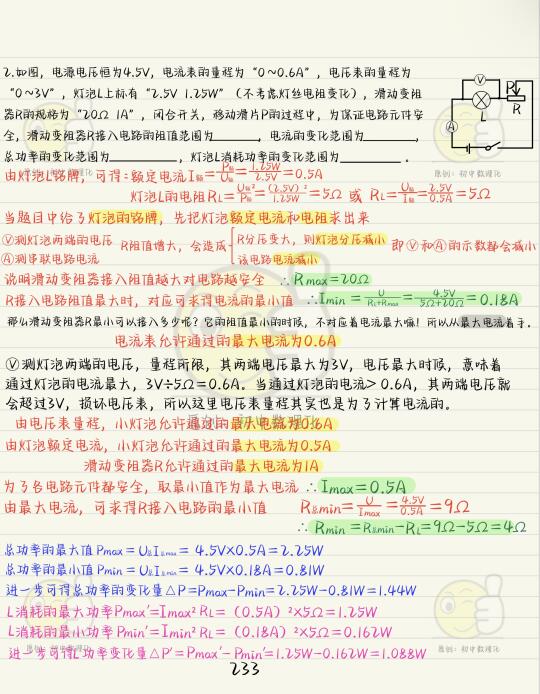 2.如图，电源电压恒为4.5V，电流表的量程为“0~0.6A”，电压表的量程为
“0~3V”，灯泡L上标有“2.5V 1.25W”（不考虑灯丝电阻变化），滑动变阻
器R的规格为“20Ω 1A”，闭合开关，移动滑片P的过程中，为保证电路元件安
全，滑动变阻器R接入电路的阻值范围为________，电流的变化范围为________，
总功率的变化范围为________，灯泡L消耗功率的变化范围为________。
V
P
L
R
A
由灯泡L铭牌，可得：额定电流I额=P额/U额=1.25W/2.5V=0.5A
灯泡L的电阻RL=U额²/P额=(2.5V)²/1.25W=5Ω 或 RL=U额/I额=2.5V/0.5A=5Ω
当题目中给了灯泡的铭牌，先把灯泡额定电流和电阻求出来
Ⓥ测灯泡两端的电压
Ⓐ测串联电路电流
R阻值增大，会造成
R分压变大，则灯泡分压减小
该电路电流减小
即Ⓥ和Ⓐ的示数都会减小
说明滑动变阻器接入阻值越大对电路越安全 ∴Rmax=20Ω
R接入电路阻值最大时，对应可求得电流的最小值 ∴Imin=U/(RL+Rmax)=4.5V/(5Ω+20Ω)=0.18A
那么滑动变阻器R最小可以接入多少呢？它的阻值最小的时候，不对应着电流最大嘛！所以从最大电流着手。
电流表允许通过的最大电流为0.6A
Ⓥ测灯泡两端的电压，量程所限，其两端电压最大为3V，电压最大时候，意味着
通过灯泡的电流最大，3V÷5Ω=0.6A。当通过灯泡的电流>0.6A，其两端电压就
会超过3V，损坏电压表，所以这里电压表量程其实也是为了计算电流的。
由电压表量程，小灯泡允许通过的最大电流为0.6A
由灯泡额定电流，小灯泡允许通过的最大电流为0.5A
滑动变阻器R允许通过的最大电流为1A
为了各电路元件都安全，取最小值作为最大电流 ∴Imax=0.5A
由最大电流，可求得R接入电路的最小值 R总min=U/Imax=4.5V/0.5A=9Ω
∴Rmin=R总min-RL=9Ω-5Ω=4Ω
总功率的最大值Pmax=U总I总max=4.5V×0.5A=2.25W
总功率的最小值Pmin=U总I总min=4.5V×0.18A=0.81W
进一步可得总功率的变化量△P=Pmax-Pmin=2.25W-0.81W=1.44W
L消耗的最大功率Pmax'=Imax²RL=（0.5A）²×5Ω=1.25W
L消耗的最小功率Pmin'=Imin²RL=（0.18A）²×5Ω=0.162W
进一步可得L功率变化量△P'=Pmax'-Pmin'=1.25W-0.162W=1.088W
原创：初中数理化
233